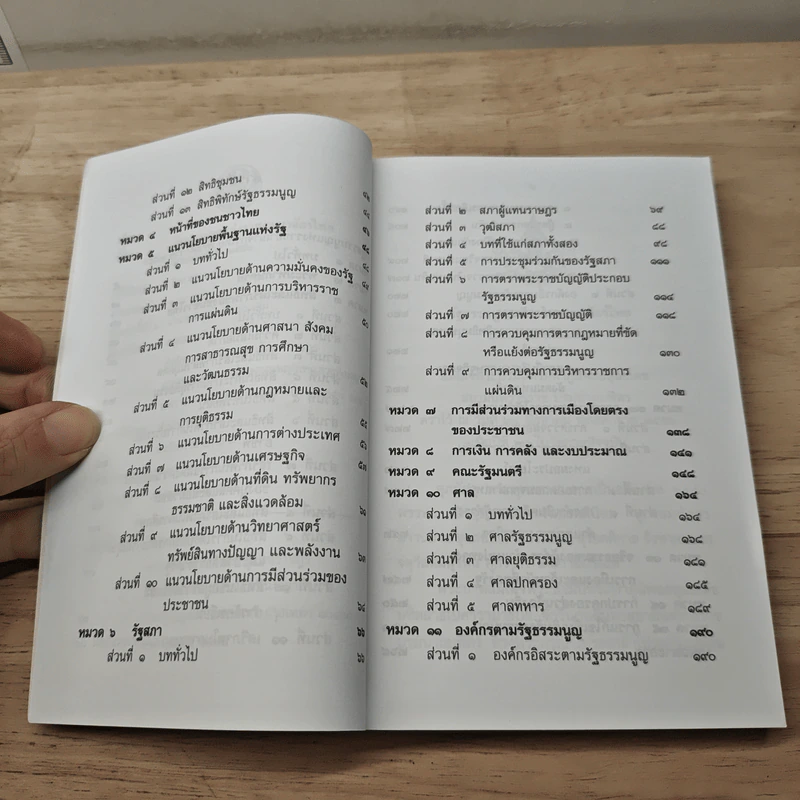 ส่วนที่ ๑๒ สิทธิชุมชน
ส่วนที่ ๑๓ สิทธิพิทักษ์รัฐธรรมนูญ
หมวด ๔ หน้าที่ของชนชาวไทย
หมวด ๕ แนวนโยบายพื้นฐานแห่งรัฐ
ส่วนที่ ๑ บททั่วไป
ส่วนที่ ๒ แนวนโยบายด้านความมั่นคงของรัฐ
ส่วนที่ ๓ แนวนโยบายด้านการบริหารราช
การแผ่นดิน ๕๐
ส่วนที่ ๔ แนวนโยบายด้านศาสนา สังคม
การสาธารณสุข การศึกษา
และวัฒนธรรม ๕๒
ส่วนที่ ๕ แนวนโยบายด้านกฎหมายและ
การยุติธรรม ๕๕
ส่วนที่ ๖ แนวนโยบายด้านการต่างประเทศ ๕๖
ส่วนที่ ๗ แนวนโยบายด้านเศรษฐกิจ ๕๗
ส่วนที่ ๘ แนวนโยบายด้านที่ดิน ทรัพยากร
ธรรมชาติ และสิ่งแวดล้อม ๖๑
ส่วนที่ ๙ แนวนโยบายด้านวิทยาศาสตร์
ทรัพย์สินทางปัญญา และพลังงาน ๖๓
ส่วนที่ ๑๐ แนวนโยบายด้านการมีส่วนร่วมของ
ประชาชน ๖๔
หมวด ๖ รัฐสภา ๖๖
ส่วนที่ ๑ บททั่วไป ๖๖
ส่วนที่ ๒ สภาผู้แทนราษฎร ๖๙
ส่วนที่ ๓ วุฒิสภา ๘๘
ส่วนที่ ๔ บทที่ใช้แก่สภาทั้งสอง ๙๘
ส่วนที่ ๕ การประชุมร่วมกันของรัฐสภา ๑๑๑
ส่วนที่ ๖ การตราพระราชบัญญัติประกอบ
รัฐธรรมนูญ ๑๑๔
ส่วนที่ ๗ การตราพระราชบัญญัติ ๑๑๘
ส่วนที่ ๘ การควบคุมการตรากฎหมายที่ขัด
หรือแย้งต่อรัฐธรรมนูญ ๑๓๐
ส่วนที่ ๙ การควบคุมการบริหารราชการ
แผ่นดิน ๑๓๒
หมวด ๗ การมีส่วนร่วมทางการเมืองโดยตรง
ของประชาชน ๑๓๘
หมวด ๘ การเงิน การคลัง และงบประมาณ ๑๔๑
หมวด ๙ คณะรัฐมนตรี ๑๔๘
หมวด ๑๐ ศาล ๑๖๔
ส่วนที่ ๑ บททั่วไป ๑๖๔
ส่วนที่ ๒ ศาลรัฐธรรมนูญ ๑๖๘
ส่วนที่ ๓ ศาลยุติธรรม ๑๘๑
ส่วนที่ ๔ ศาลปกครอง ๑๘๕
ส่วนที่ ๕ ศาลทหาร ๑๘๙
หมวด ๑๑ องค์กรตามรัฐธรรมนูญ ๑๙๐
ส่วนที่ ๑ องค์กรอิสระตามรัฐธรรมนูญ ๑๙๐